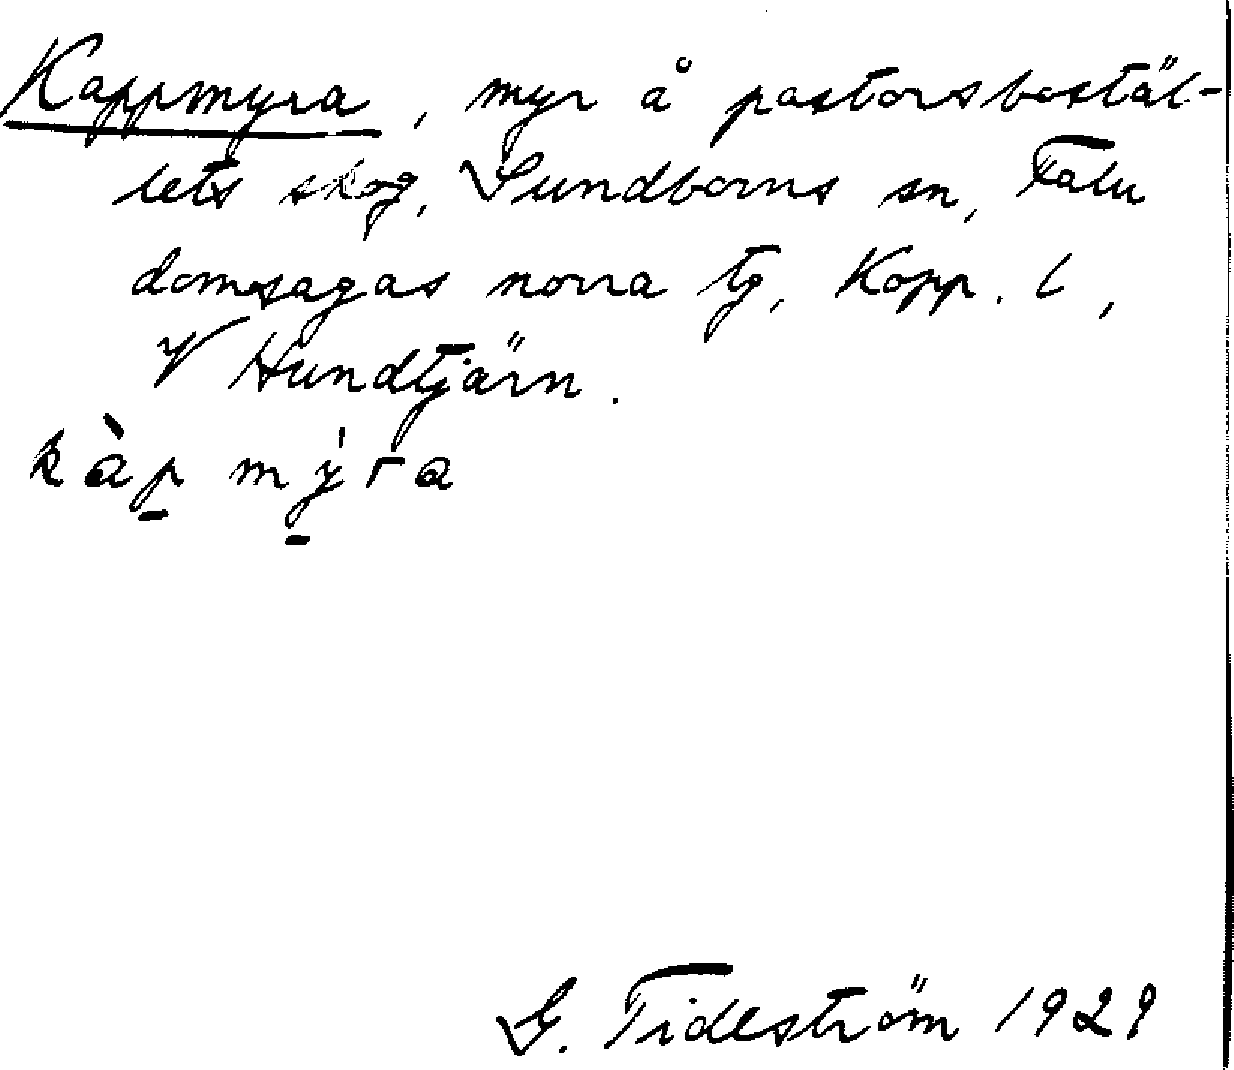 Kappmyra, myr å pastorsboställ-
lets skog, Sundborns sn, Falu
domsagas norra tg, Kopp. l,
V Hundtjärn.
kàp̠ my̠̍ra
G. Tideström 1929